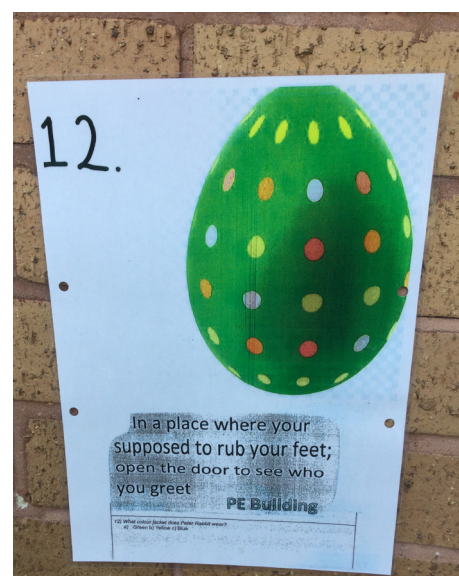 12.
In a place where your
supposed to rub your feet;
open the door to see who
you greet
PE Building
12) What colour jacket does Peter Rabbit wear?
a) Green b) Yellow c) Blue